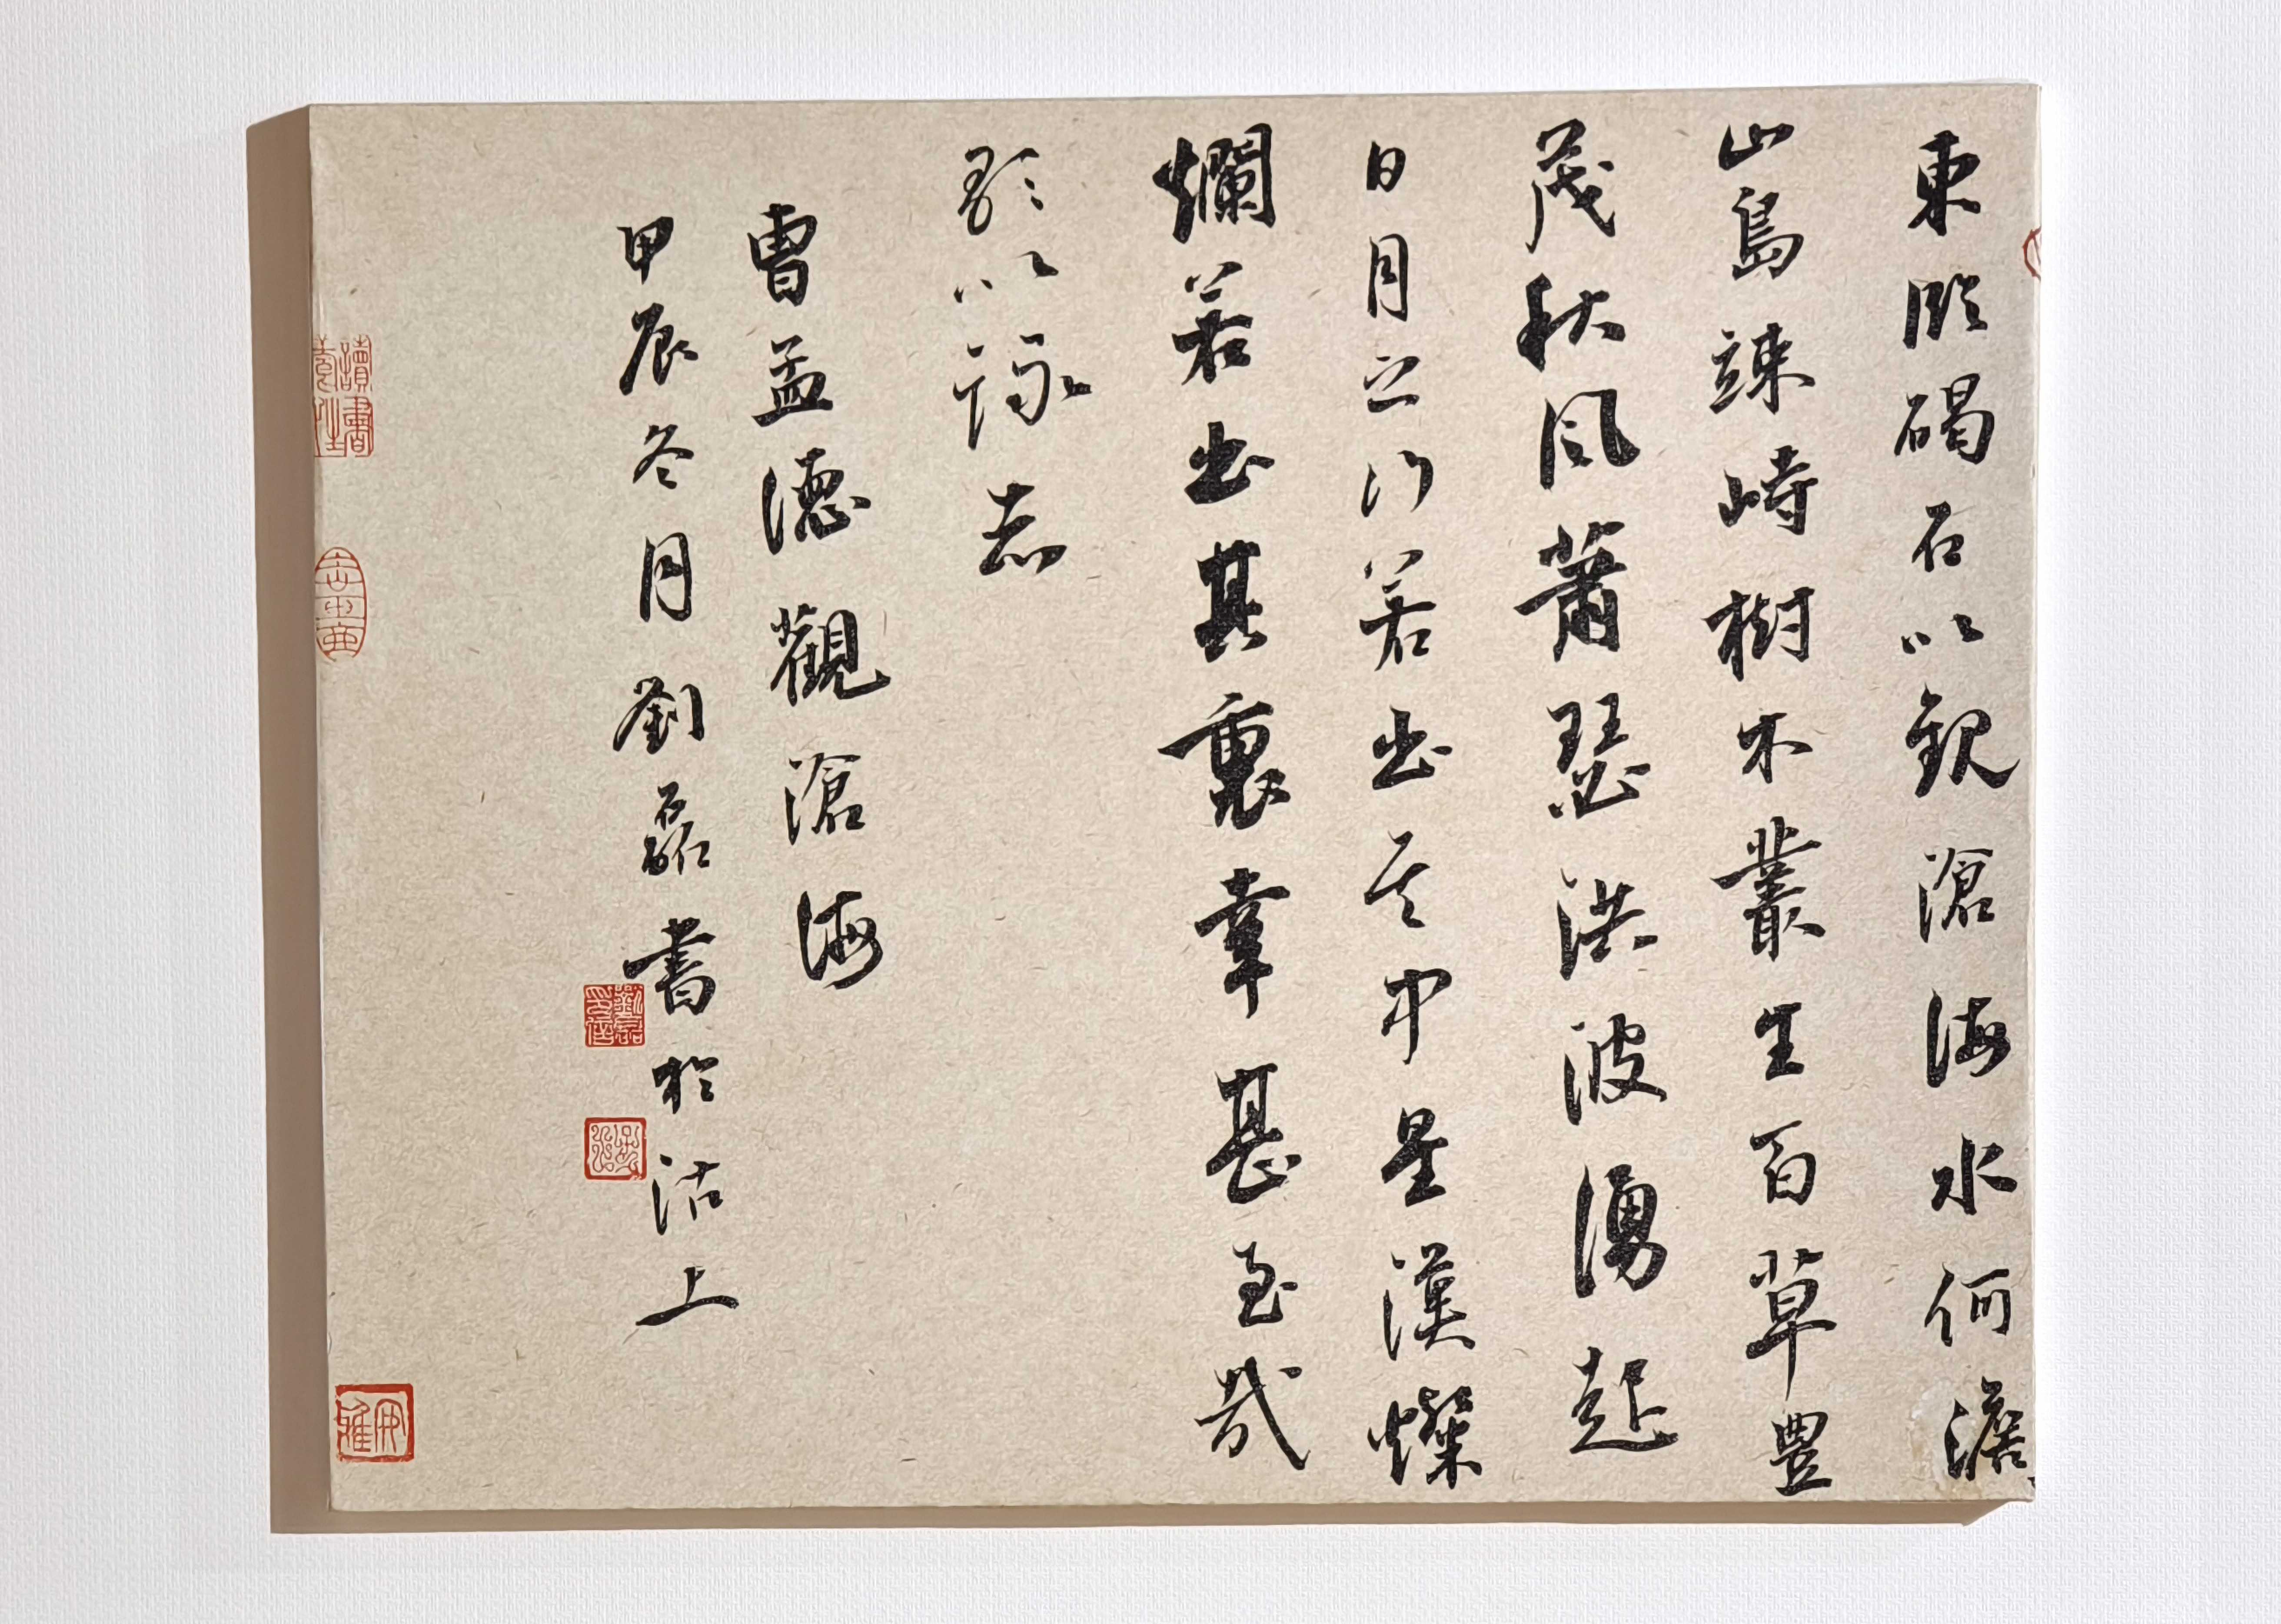 東臨碣石以觀滄海水何澹
山島竦峙樹木叢生百草豊
茂秋風蕭瑟洪波湧起
日月之行若出其中星漢燦
爛若出其裏幸甚至哉
歌以詠志
曹孟德觀滄海
甲辰冬月劉磊書於沽上
劉磊印信
讀書